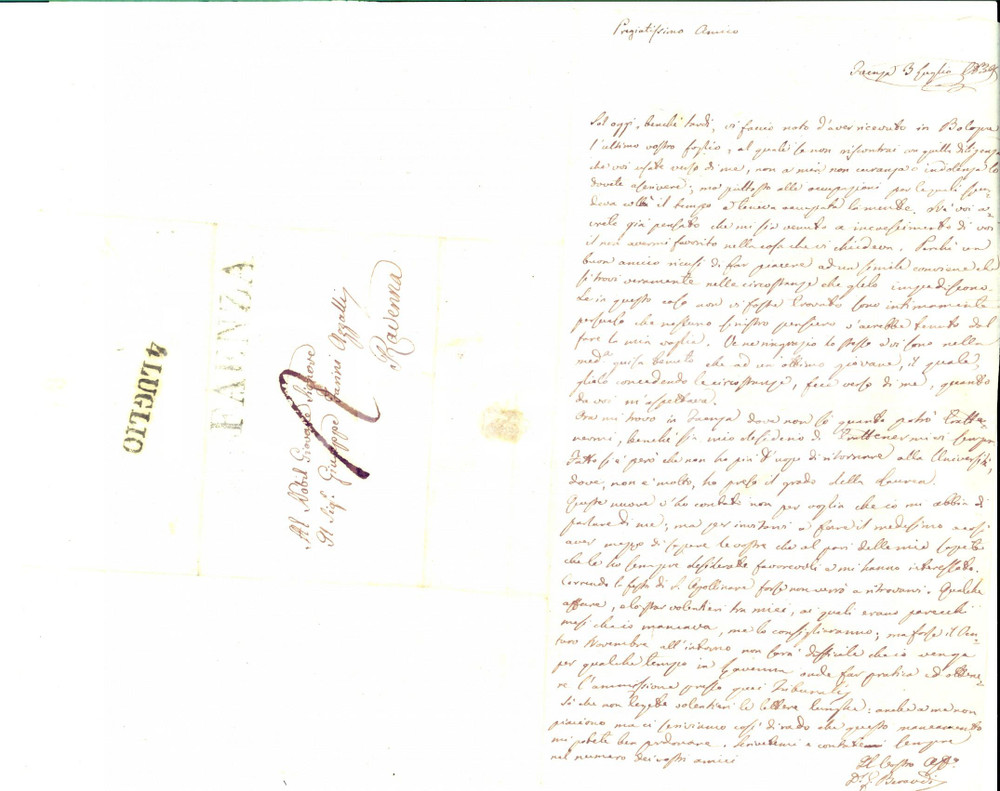 Pregiatissimo Amico
Faenza 3 Luglio
Sol oggi, benchè tardi, vi faccio noto d'aver ricevuto in Bologna
l'ultimo vostro foglio, al quale se non riscontrai con quella diligenza
che voi usate verso di me, non a mia non curanza o indolenza lo
dovete ascrivere; ma piuttosto alle occupazioni per le quali spen-
deva colà il tempo e teneva occupata la mente. Nè voi a-
vrete già pensato che mi sia venuto a increscimento di voi
il non avermi favorito nella cosa che vi chiedeva. Perchè un
buon amico ricusi di far piacere ad un simile conviene che
si trovi veramente nelle circostanze che glielo impediscono.
Se in questo caso non vi foste trovato sono intimamente
persuaso che nessuno sinistro pensiero v'avrebbe tenuto dal
fare la mia voglia. Ve ne ringrazio lo stesso e vi sono nella
med.a guisa tenuto che ad un ottimo giovane, il quale,
glielo concedendo le circostanze, fece verso di me, quanto
da voi m'aspettava.
Ora mi trovo in Faenza dove non so quanto potrò tratte-
nermi, benchè sia mio desiderio di trattenermivi sempre
Fatto si è però che non ho più d'uopo di ritornare alla Università,
dove, non è molto, ho preso il grado della Laurea.
Queste nuove v'ho contato non per voglia che io mi abbia di
parlare di me; ma per invitarvi a fare il medesimo e così
aver mezzo di sapere le vostre che al pari delle mie sapete
che le ho sempre desiderate favorevoli e mi hanno interessato.
Correndo la festa di S. Apollinare forse non verrò a ritrovarvi. Qualche
affare, e lo star volentieri tra miei, ai quali erano parecchi
mesi che io mancava, me lo consiglieranno; ma forse il ven-
turo Novembre all'intorno non sarà difficile che io venga
per qualche tempo in Ravenna onde far pratica ed ottene-
re l'ammissione presso quei Tribunali.
So che non leggete volentieri le lettere lunghe: anche a me non
piacciono ma ci scriviamo così di rado che questo mancamento
mi potete ben perdonare. Scrivetemi e contatemi sempre
nel numero dei vostri amici
Il Vostro Aff.o
D. G. Berardi
Al Nobil Giovane Signore
Il Sig.r Giuseppe Nanni Azzalli
Ravenna
FAENZA
4 LUGLIO